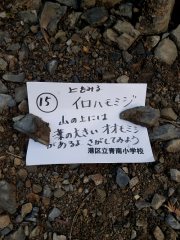 ともみる
⑮ イロハモミジ
山の上には
葉の大きい オオモミジ
があるよ さがしてみよう
港区立青南小学校